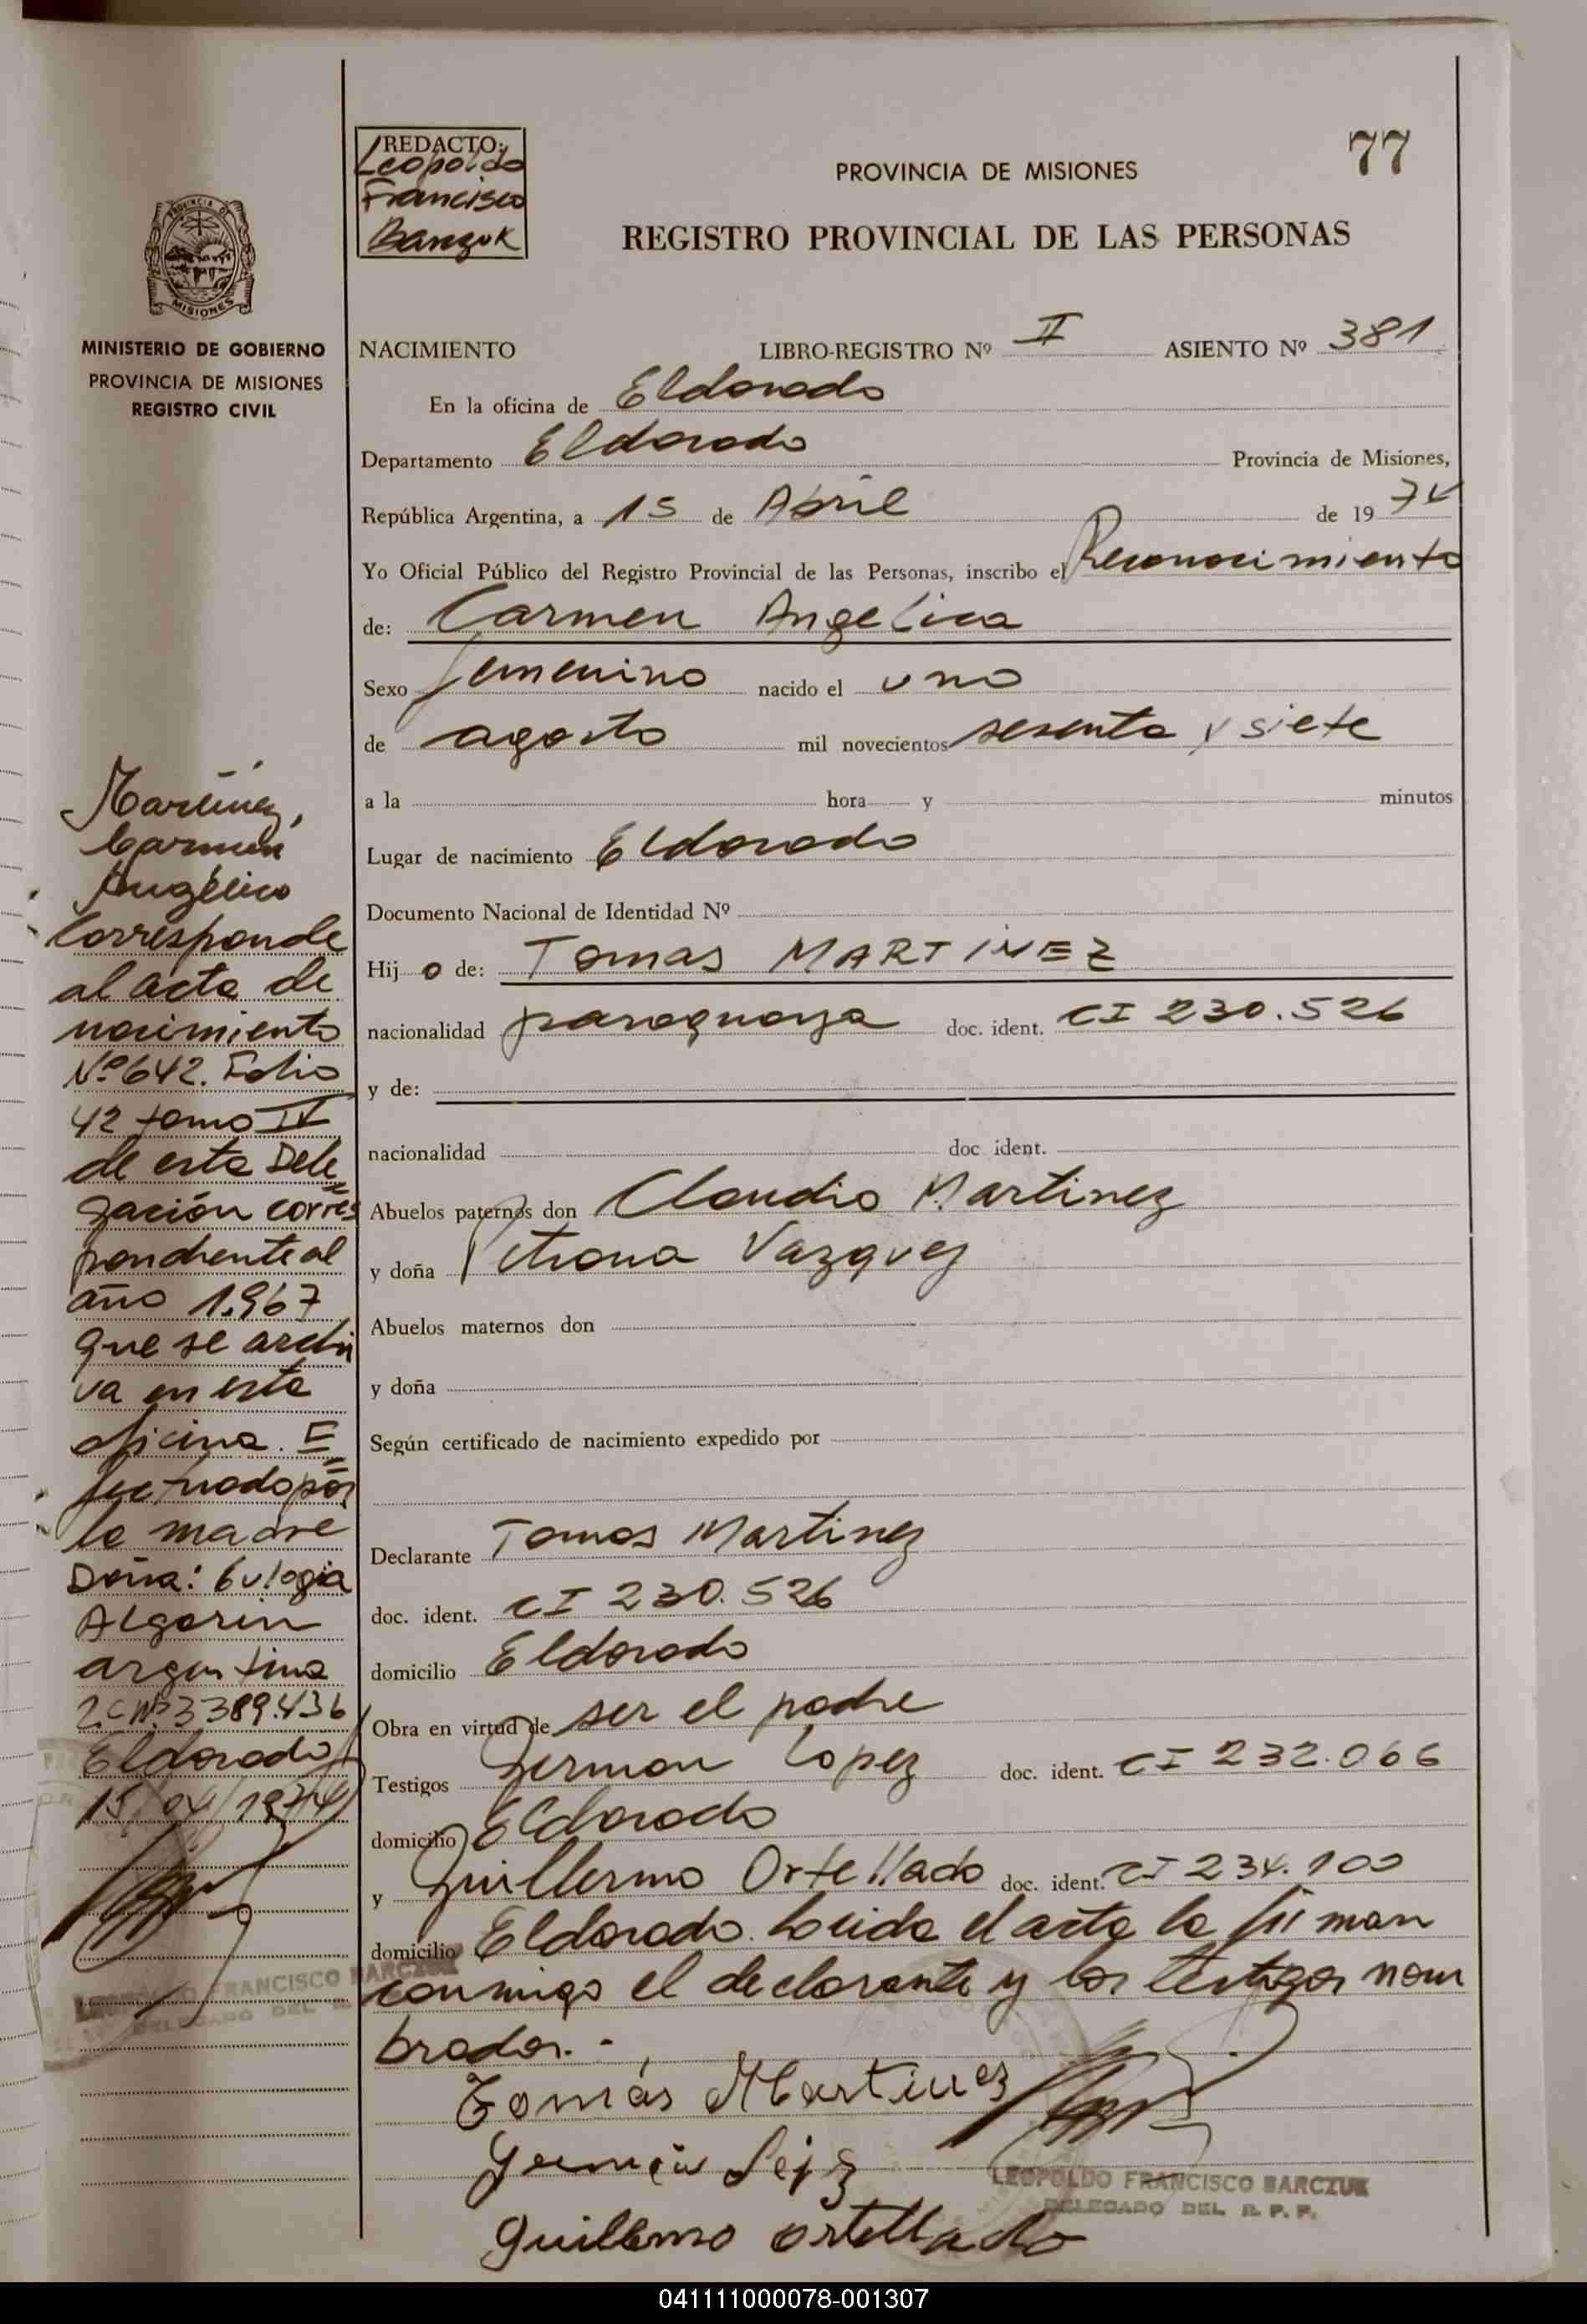 REDACTO:
Leopoldo
Francisco
Barczuk
77
PROVINCIA DE MISIONES
REGISTRO PROVINCIAL DE LAS PERSONAS
MISIONES
MINISTERIO DE GOBIERNO
PROVINCIA DE MISIONES
REGISTRO CIVIL
NACIMIENTO LIBRO-REGISTRO Nº II ASIENTO Nº 381
En la oficina de Eldorado
Departamento Eldorado Provincia de Misiones,
República Argentina, a 15 de Abril de 1974
Yo Oficial Público del Registro Provincial de las Personas, inscribo el Reconocimiento
de: Carmen Angelica
Sexo femenino nacido el uno
de agosto mil novecientos sesenta y siete
a la hora y minutos
Lugar de nacimiento Eldorado
Documento Nacional de Identidad Nº
Hij o de: Tomas MARTINEZ
nacionalidad paraguaya doc. ident. CI 230.526
y de:
nacionalidad doc ident.
Abuelos paternos don Claudio Martinez
y doña Petrona Vazquez
Abuelos maternos don
y doña
Según certificado de nacimiento expedido por
Declarante Tomas Martinez
doc. ident. CI 230.526
domicilio Eldorado
Obra en virtud de ser el padre
Testigos German Lopez doc. ident. CI 232.066
domicilio Eldorado
y Guillermo Ortellado doc. ident. CI 234.100
domicilio Eldorado. Leida el acta la firman
conmigo el declarante y los testigos nom
brados.-
Tomás Martinez
Germán
Guillermo Ortellado
LEOPOLDO FRANCISCO BARCZUK
DELEGADO DEL R. P. P.
Martinez,
Carmen
Angélica
Corresponde
al acta de
nacimiento
Nº 642. Folio
42 tomo IV
de esta Dele
gación corres
pondiente al
año 1.967
que se archi
va en esta
oficina. E
fectuado por
la madre
Doña: Eulogia
Algarin
argentina
LC Nº 3389.436
Eldorado
15/04/1974
FRANCISCO BARCZUK
DELEGADO DEL R.
041111000078-001307